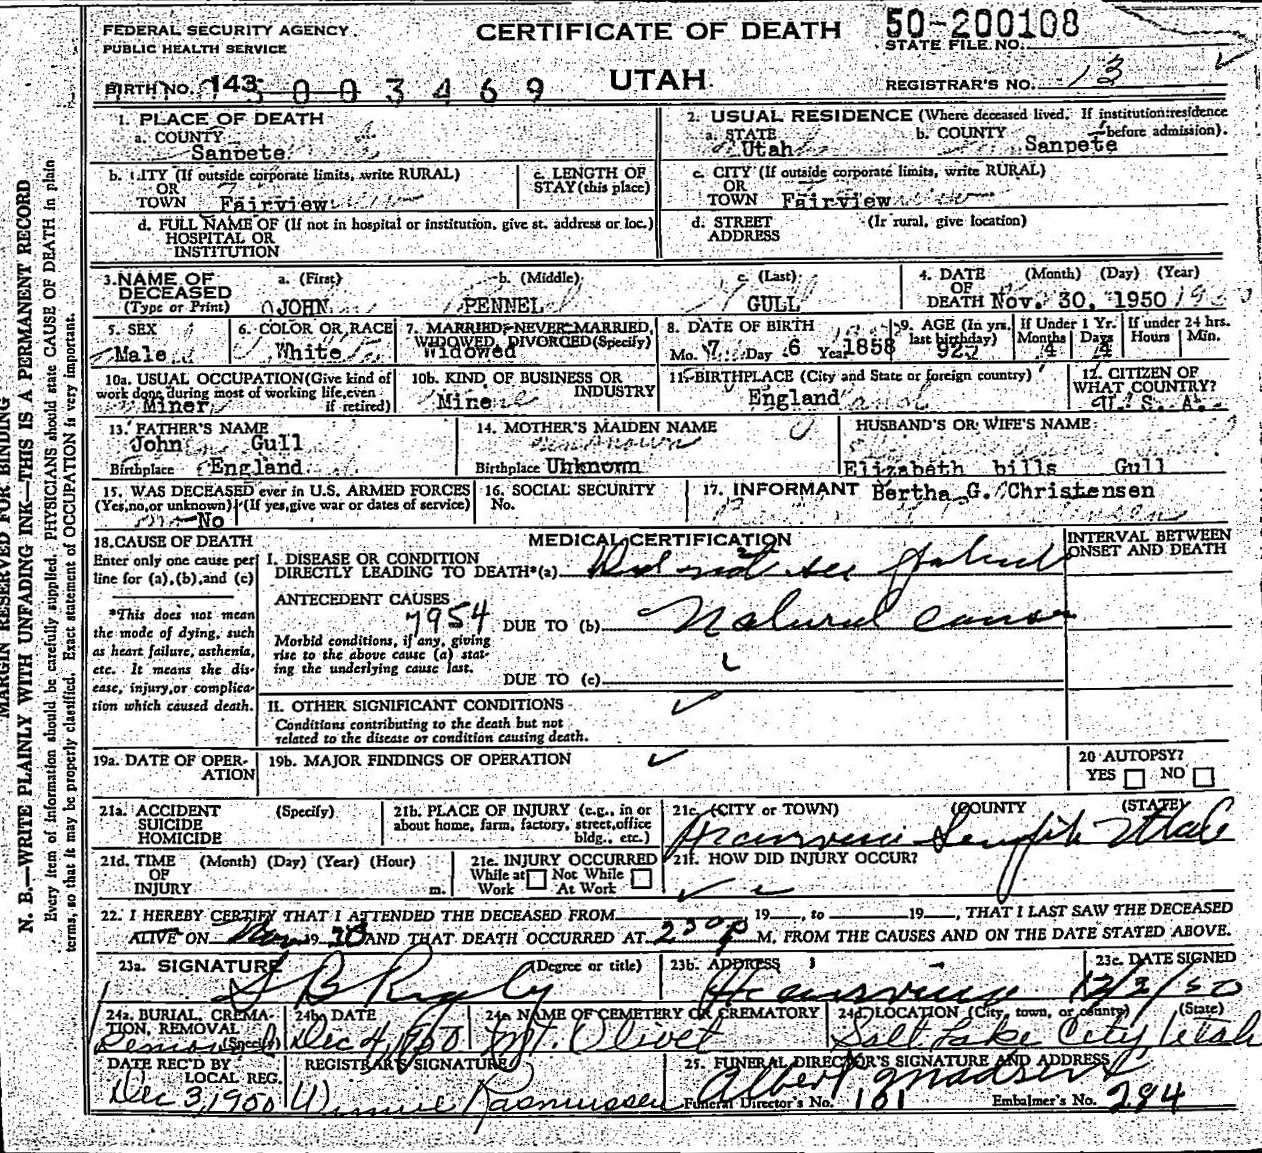 FEDERAL SECURITY AGENCY
PUBLIC HEALTH SERVICE
CERTIFICATE OF DEATH
UTAH
50-200108
STATE FILE NO.
BIRTH NO. 143 003469
REGISTRAR'S NO. 13
MARGIN RESERVED FOR BINDING
N. B.—WRITE PLAINLY WITH UNFADING INK—THIS IS A PERMANENT RECORD
Every item of information should be carefully supplied. PHYSICIANS should state CAUSE OF DEATH in plain
terms, so that it may be properly classified. Exact statement of OCCUPATION is very important.
1. PLACE OF DEATH
a. COUNTY
Sanpete
2. USUAL RESIDENCE (Where deceased lived. If institution: residence before admission).
a. STATE Utah
b. COUNTY Sanpete
b. CITY (If outside corporate limits, write RURAL)
OR
TOWN Fairview
c. LENGTH OF
STAY (this place)
c. CITY (If outside corporate limits, write RURAL)
OR
TOWN Fairview
d. FULL NAME OF (If not in hospital or institution, give st. address or loc.)
HOSPITAL OR
INSTITUTION
d. STREET (If rural, give location)
ADDRESS
3. NAME OF DECEASED
(Type or Print)
a. (First) JOHN
b. (Middle) PENNEL
c. (Last) GULL
4. DATE OF DEATH (Month) (Day) (Year)
Nov. 30, 1950
5. SEX
Male
6. COLOR OR RACE
White
7. MARRIED, NEVER MARRIED,
WIDOWED, DIVORCED (Specify)
Widowed
8. DATE OF BIRTH
Mo. 7 Day 6 Year 1858
9. AGE (In yrs. last birthday)
92
If Under 1 Yr.
Months 4 Days 4
If under 24 hrs.
Hours Min.
10a. USUAL OCCUPATION (Give kind of
work done during most of working life, even
if retired)
Miner
10b. KIND OF BUSINESS OR
INDUSTRY
Mine
11. BIRTHPLACE (City and State or foreign country)
England
12. CITIZEN OF
WHAT COUNTRY?
U. S. A.
13. FATHER'S NAME
John Gull
Birthplace England
14. MOTHER'S MAIDEN NAME
Unknown
Birthplace Unknown
HUSBAND'S OR WIFE'S NAME
Elizabeth bills Gull
15. WAS DECEASED ever in U.S. ARMED FORCES
(Yes, no, or unknown) (If yes, give war or dates of service)
No
16. SOCIAL SECURITY
No.
17. INFORMANT Bertha G. Christensen
18. CAUSE OF DEATH
Enter only one cause per
line for (a), (b), and (c)
*This does not mean
the mode of dying, such
as heart failure, asthenia,
etc. It means the dis-
ease, injury, or complica-
tion which caused death.
MEDICAL CERTIFICATION
INTERVAL BETWEEN
ONSET AND DEATH
I. DISEASE OR CONDITION
DIRECTLY LEADING TO DEATH*(a) Did not see patient
ANTECEDENT CAUSES
7954
DUE TO (b) Natural cause
Morbid conditions, if any, giving
rise to the above cause (a) stat-
ing the underlying cause last.
DUE TO (c)
II. OTHER SIGNIFICANT CONDITIONS
Conditions contributing to the death but not
related to the disease or condition causing death.
19a. DATE OF OPER-
ATION
19b. MAJOR FINDINGS OF OPERATION
20 AUTOPSY?
YES NO
21a. ACCIDENT (Specify)
SUICIDE
HOMICIDE
21b. PLACE OF INJURY (e.g., in or
about home, farm, factory, street, office
bldg., etc.)
21c. (CITY or TOWN) (COUNTY) (STATE)
Utah
21d. TIME (Month) (Day) (Year) (Hour)
OF
INJURY m.
21e. INJURY OCCURRED
While at Work Not While At Work
21f. HOW DID INJURY OCCUR?
22. I HEREBY CERTIFY THAT I ATTENDED THE DECEASED FROM 19 , to 19 , THAT I LAST SAW THE DECEASED
ALIVE ON Nov 19 AND THAT DEATH OCCURRED AT 230 P M, FROM THE CAUSES AND ON THE DATE STATED ABOVE.
23a. SIGNATURE (Degree or title)
S B Rigby
23b. ADDRESS
23c. DATE SIGNED
12/2/50
24a. BURIAL, CREMA-
TION, REMOVAL
(Specify)
Removal
24b. DATE
Dec 4, 1950
24c NAME OF CEMETERY OR CREMATORY
Mt. Olivet
24d. LOCATION (City, town, or county) (State)
Salt Lake City Utah
DATE REC'D BY
LOCAL REG.
Dec 3, 1950
REGISTRAR'S SIGNATURE
Winnie Rasmussen
25. FUNERAL DIRECTOR'S SIGNATURE AND ADDRESS
Albert Madsen
Funeral Director's No. 101
Embalmer's No. 284